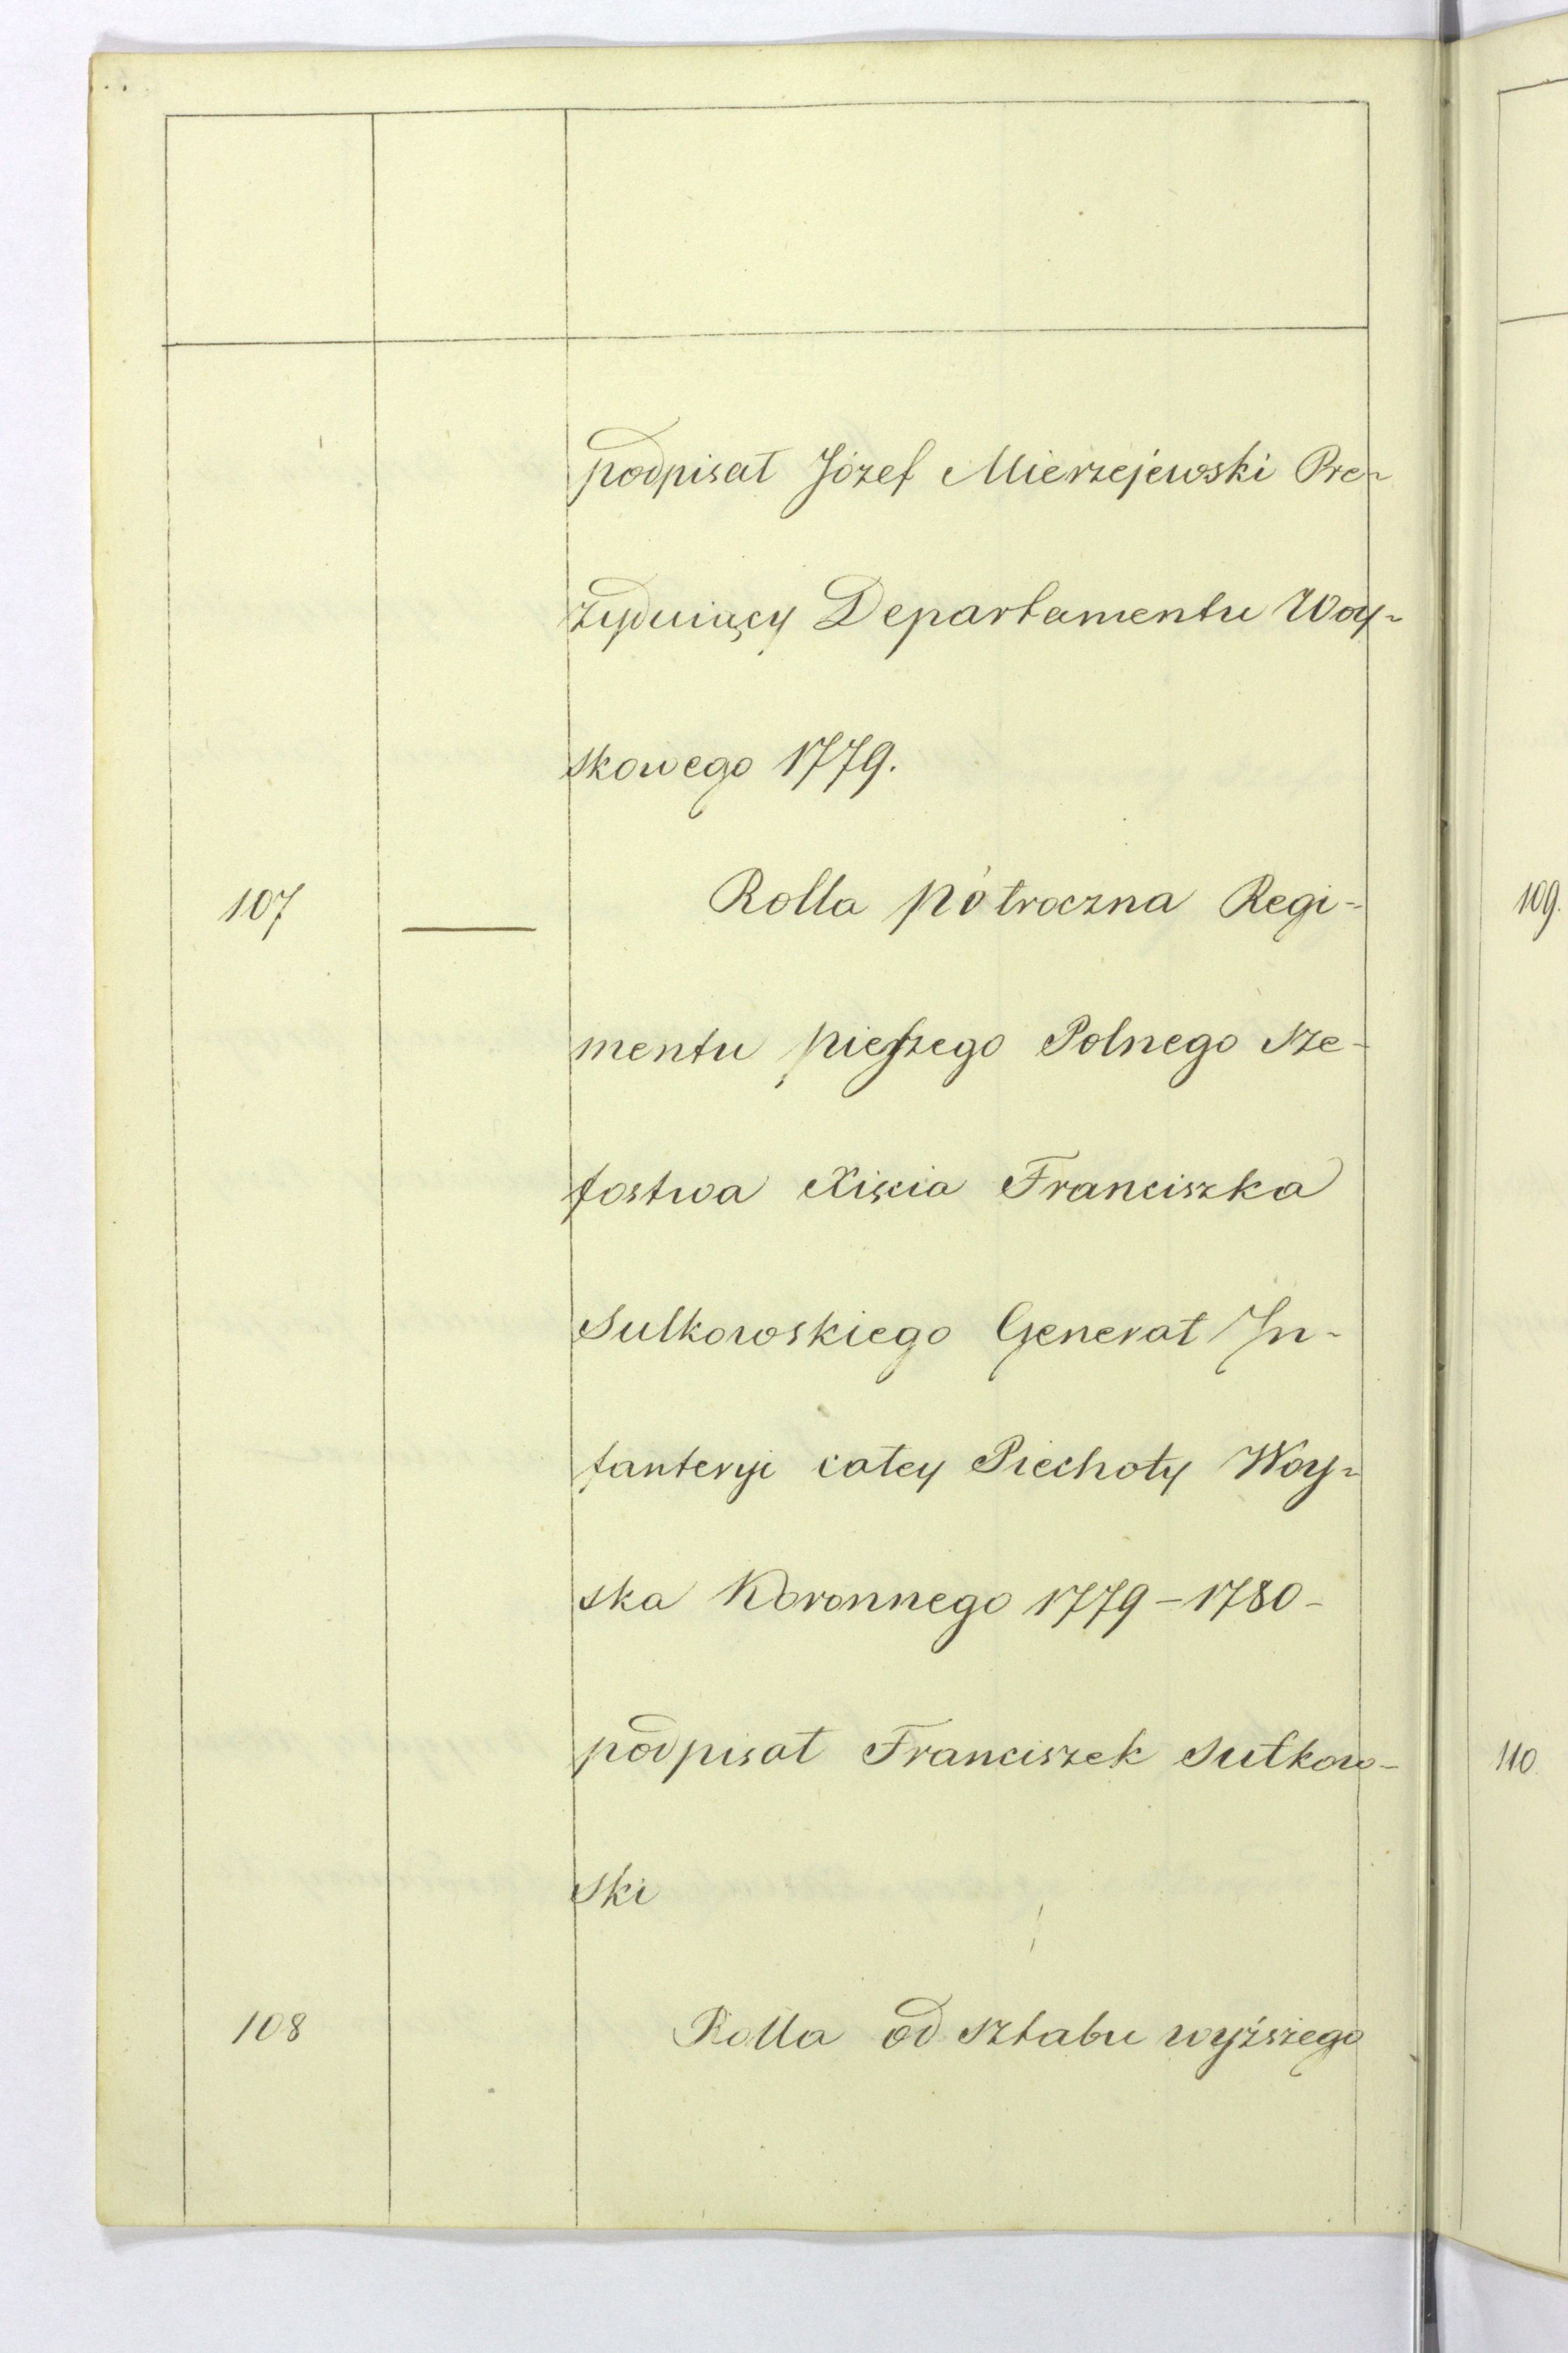 podpisał Józef Mierzejewski Pre-
zyduiący Departamentu Woy-
skowego 1779.
107 — Rolla półroczna Regi-
mentu pieszego Polnego Sze-
fostwa Xięcia Franciszka
Sulkowskiego Generał In-
fanteryi całey Piechoty Woy-
ska Koronnego 1779 - 1780 -
podpisał Franciszek Sułkow-
ski
108 Rolla od sztabu wyższego
109.
110